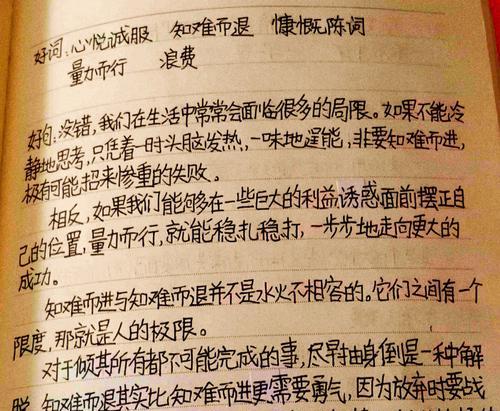 好词：心悦诚服 知难而退 慷慨陈词
量力而行 浪费
好句：没错，我们在生活中常常会面临很多的局限。如果不能冷
静地思考，只凭着一时头脑发热，一味地逞能，非要知难而进，
极有可能招来惨重的失败。
相反，如果我们能够在一些巨大的利益诱惑面前摆正自
己的位置，量力而行，就能稳扎稳打，一步步地走向更大的
成功。
知难而进与知难而退并不是水火不相容的。它们之间有一个
限度，那就是人的极限。
对于倾其所有都不可能完成的事，尽早抽身倒是一种解
脱。知难而退其实比知难而进更需要勇气，因为放弃时要战